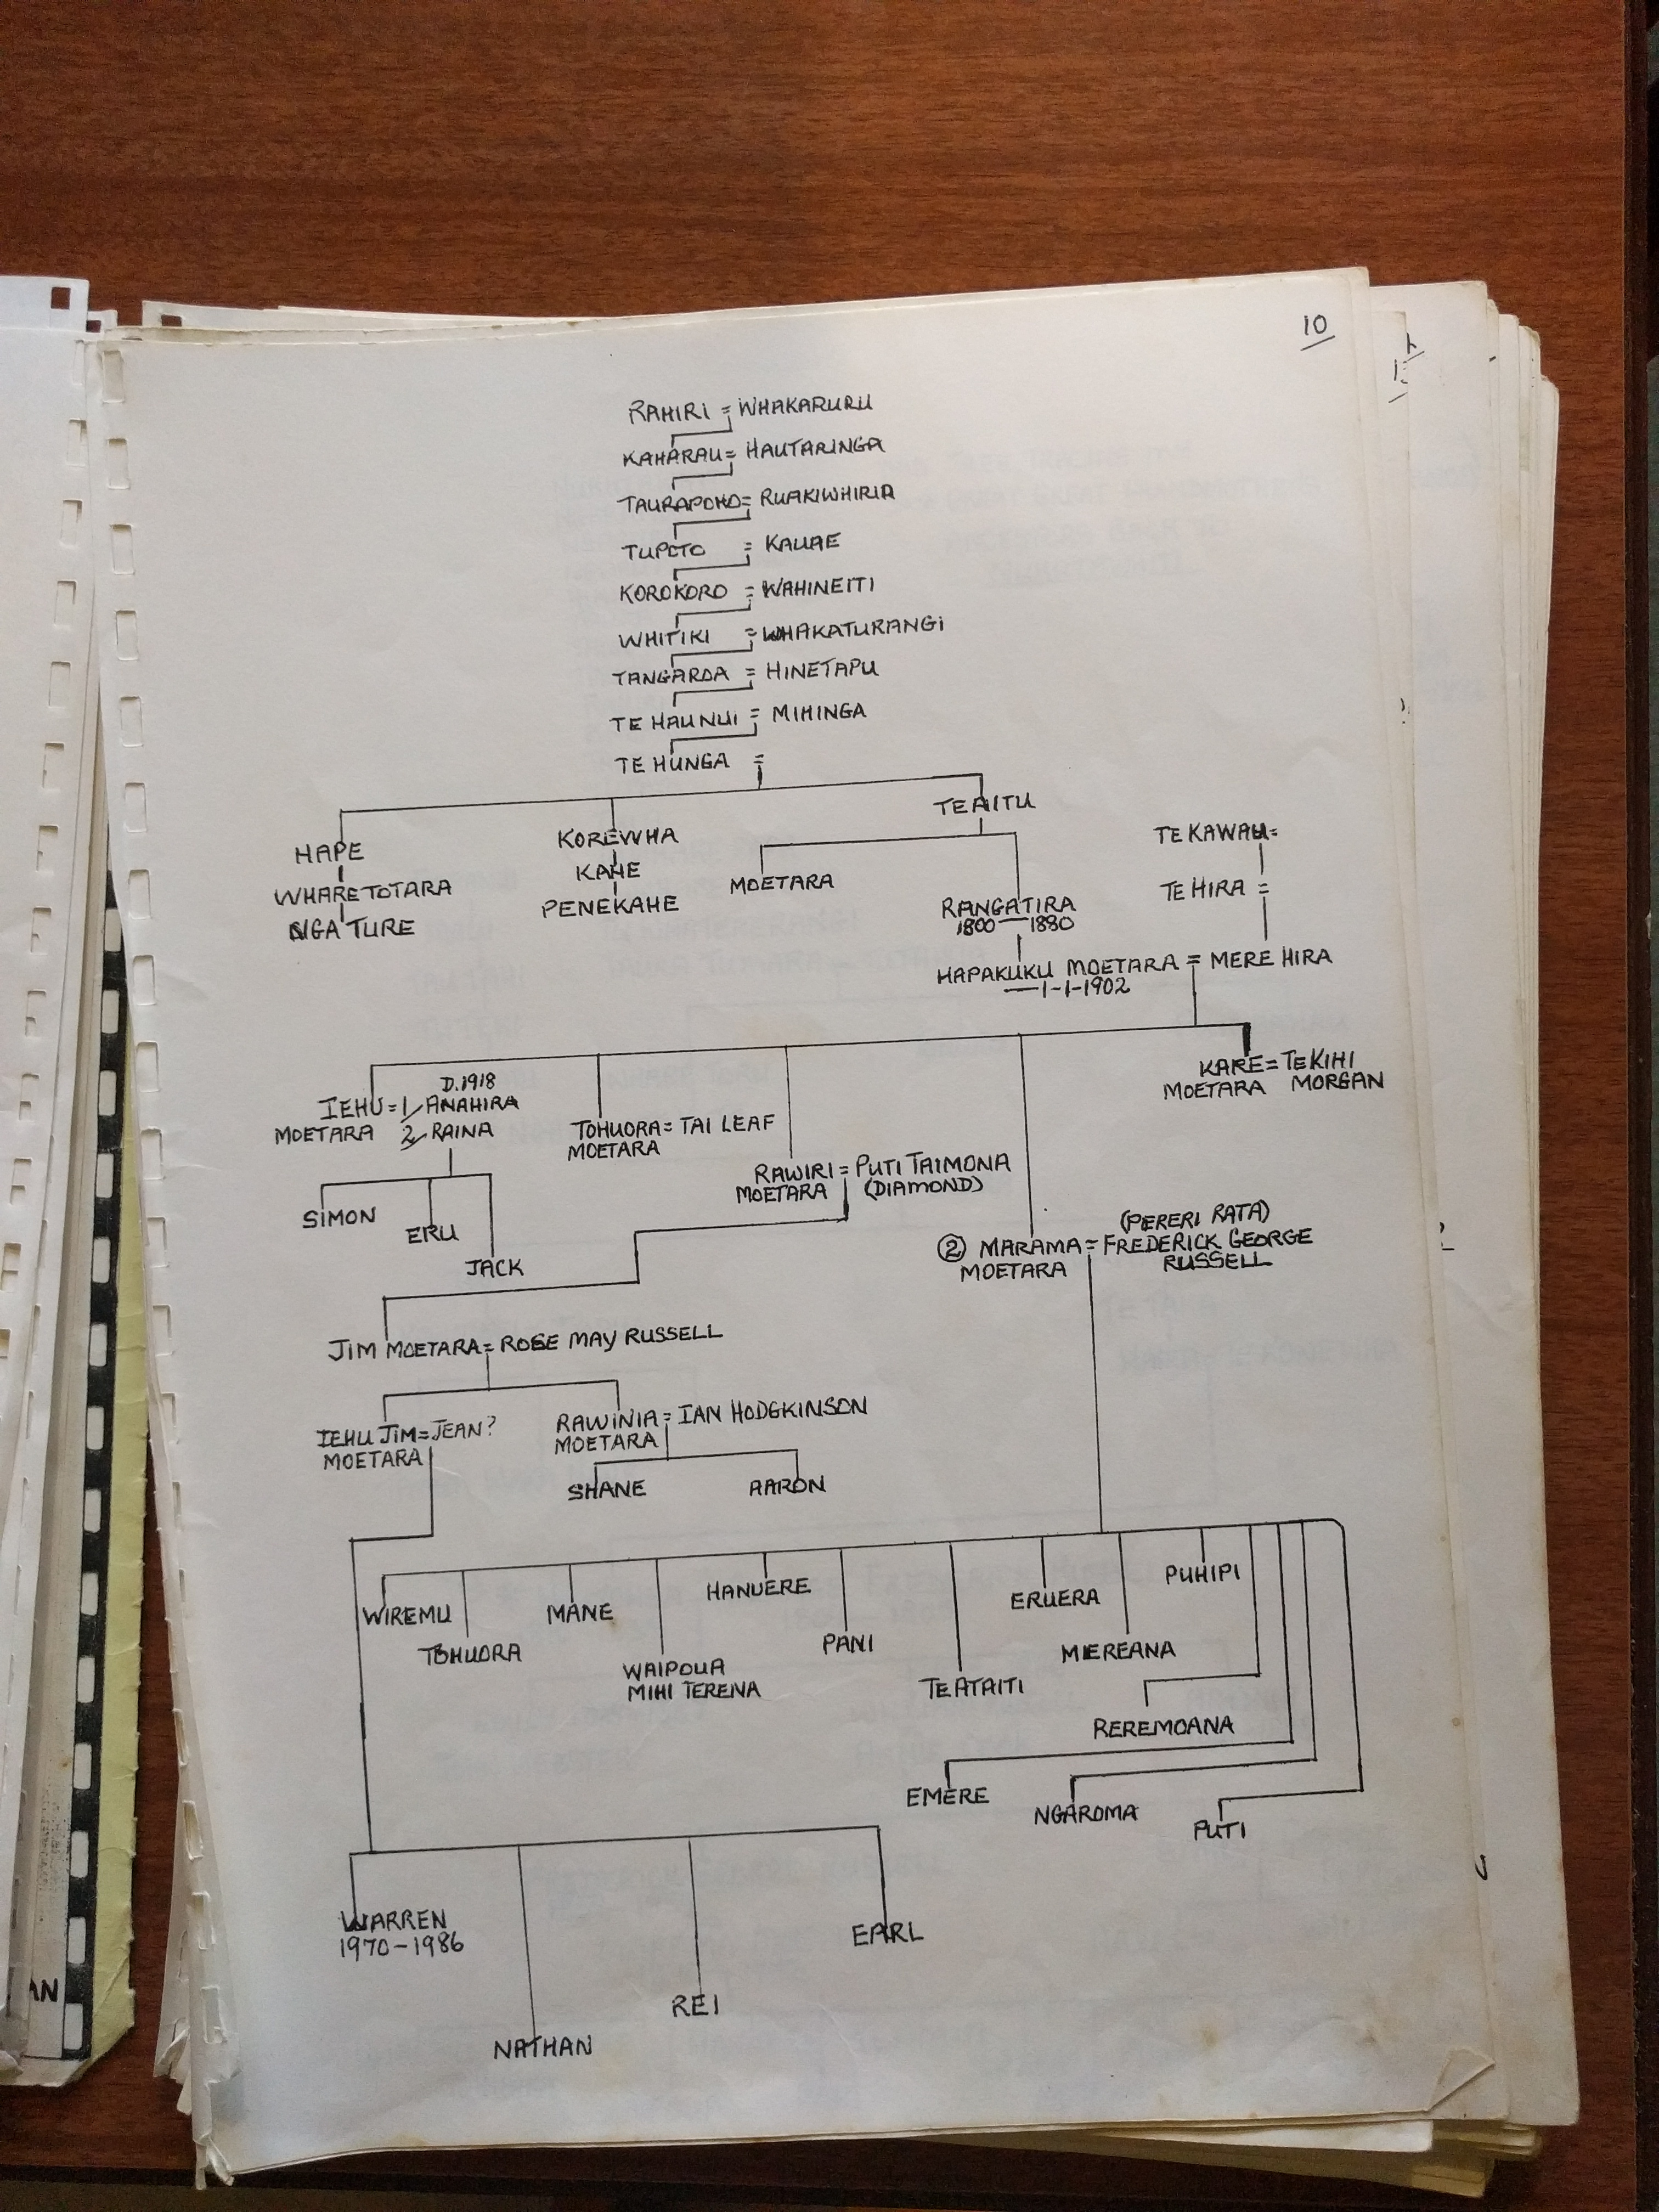 10
RAHIRI = WHAKARURU
KAHARAU = HAUTARINGA
TAURAPOHO = RUAKIWHIRIA
TUPOTO = KAUAE
KOROKORO = WAHINEITI
WHITIKI = WHAKATURANGI
TANGAROA = HINETAPU
TE HAUNUI = MIHINGA
TE HUNGA =
HAPE
WHARETOTARA
NGATURE
KOREWHA
KAHE
PENEKAHE
TEAITU
MOETARA
RANGATIRA
1800 — 1880
TE KAWAU =
TE HIRA =
HAPAKUKU MOETARA = MERE HIRA
— 1-1-1902
D.1918
IEHU = 1/ ANAHIRA
MOETARA 2/ RAINA
TOHUORA = TAI LEAF
MOETARA
RAWIRI = PUTI TAIMONA
MOETARA (DIAMOND)
KARE = TE KIHI
MOETARA MORGAN
SIMON
ERU
JACK
(PERERI RATA)
② MARAMA = FREDERICK GEORGE
MOETARA RUSSELL
JIM MOETARA = ROSE MAY RUSSELL
IEHU JIM = JEAN?
MOETARA
RAWINIA = IAN HODGKINSON
MOETARA
SHANE
AARON
WIREMU
TOHUORA
MANE
WAIPOUA
MIHI TERENA
HANUERE
PANI
TEATAITI
ERUERA
MEREANA
PUHIPI
REREMOANA
EMERE
NGAROMA
PUTI
WARREN
1970 - 1986
NATHAN
REI
EARL
AN